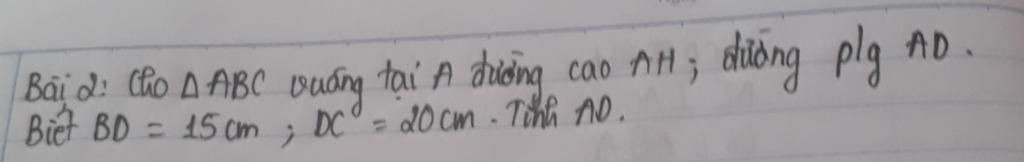 Bài 2: Cho △ABC vuông tại A đường cao AH; đường plg AD.
Biết BD = 15cm; DC = 20cm. Tính AD.